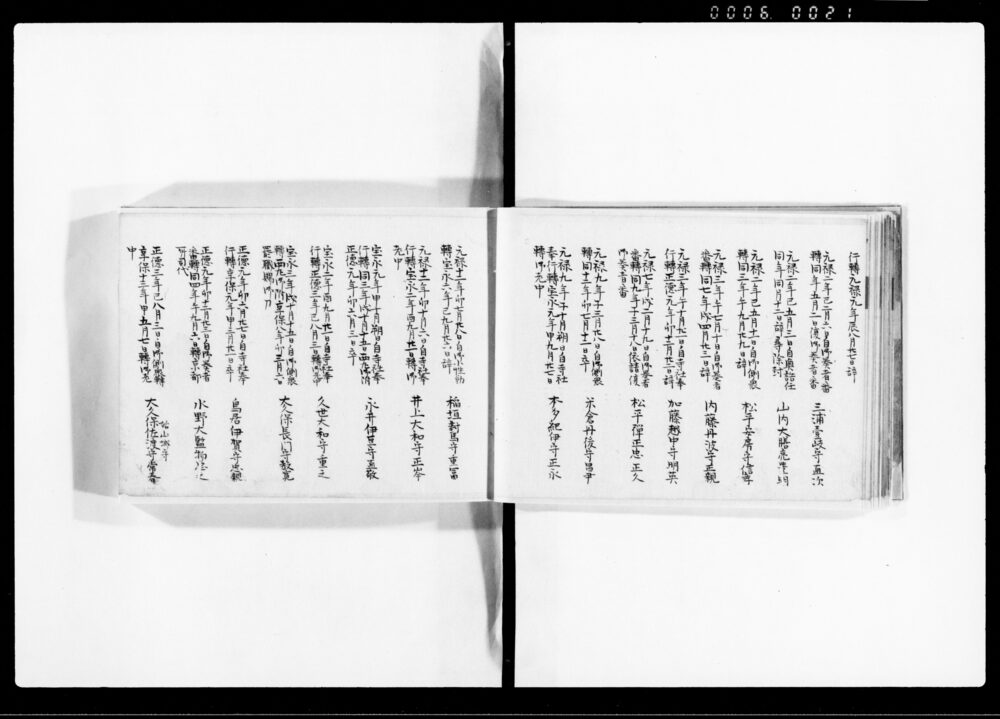 0006 0021
行轉元禄九年辰八月廿七日辞
元禄二年巳二月六日自御奏者番
轉同年五月二日復御奏者番
三浦壱岐守直次
元禄二年巳五月三日自奥詰仕
同年同月十二日辞
山内大膳亮
元禄二年巳五月十一日御側衆
轉同三年午九月九日辞
松平安房守信孝
元禄三年午七月十日自御側衆
轉同七年戌四月廿三日辞
内藤丹波守正親
元禄三年午十月廿九日自寺社奉
行轉正德元年卯十二月廿二日辞
加藤越中守明英
元禄七年戌二月十九日自御奏者
番轉同九年子三月十八日依請復
御奏者番
松平彈正忠正久
元禄九年子三月廿八日自御側衆
轉同十二年卯七月十二日卒
米倉丹後守昌尹
元禄九年子十月朔日自寺社
奉行轉宝永元年申九月廿七日
轉御老中
本多紀伊守正永
元禄十二年卯七月廿八日自御小性
轉宝永六年巳九月廿七日辞
稲垣對馬守重冨
元禄十二年卯十月六日自寺社奉
行轉宝永二年酉九月廿一日轉御
老中
井上大和守正岑
宝永元年申十月朔日自寺社奉
行轉同三年戌十月十五日西
正德元年卯六月三日卒
永井伊豆守直敬
宝永二年酉九月廿一日自寺社奉
行轉正德三年巳八月三日轉御老中
久世大和守重之
宝永三年戌十月十五日自御側衆
轉享保八年卯三月六日
大久保長門守教寛
正德元年卯六月廿七日自寺社奉
行轉享保元年申三月廿二日卒
鳥居伊賀守忠親
正德元年卯十二月廿三日自御奏者
番轉同四年午九月六日轉京都
所司代
水野大監物忠之
正德三年巳八月三日自御側衆轉
享保十三年申五月七日轉御老
中
大久保佐渡守常春